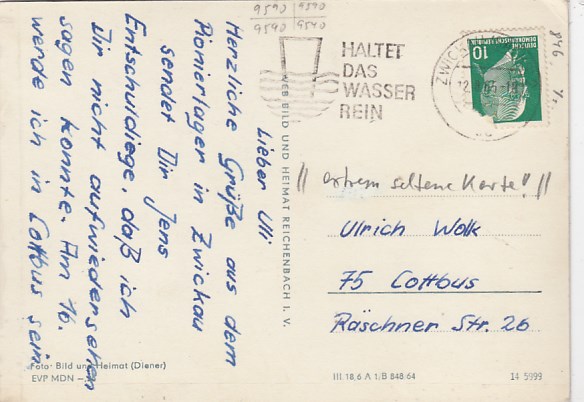 9590 | 9590
9590 | 9540
HALTET
DAS
WASSER
REIN
10
DEUTSCHE
DEMOKRATISCHE REPUBLIK
846
Lieber Uli
Herzliche Grüße aus dem
Pionierlager in Zwickau
sendet Dir Jens
Entschuldiege, daß ich
Dir nicht aufwiedersehen
sagen konnte. Am 16.
werde ich in Cottbus sein.
VEB BILD UND HEIMAT REICHENBACH I. V.
"extrem seltene Karte!"
Ulrich Wolk
75 Cottbus
Räschner Str. 26
Foto: Bild und Heimat (Diener)
EVP MDN
III.18,6 A 1/B 848/64
14 5999